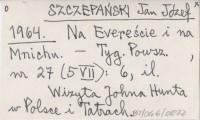 SZCZEPAŃSKI Jan Józef
1964. Na Evereście i na
Mnichu. – Tyg. Powsz.,
nr 27 (5 VII): 6, il.
Wizyta Johna Hunta
w Polsce i Tatrach.